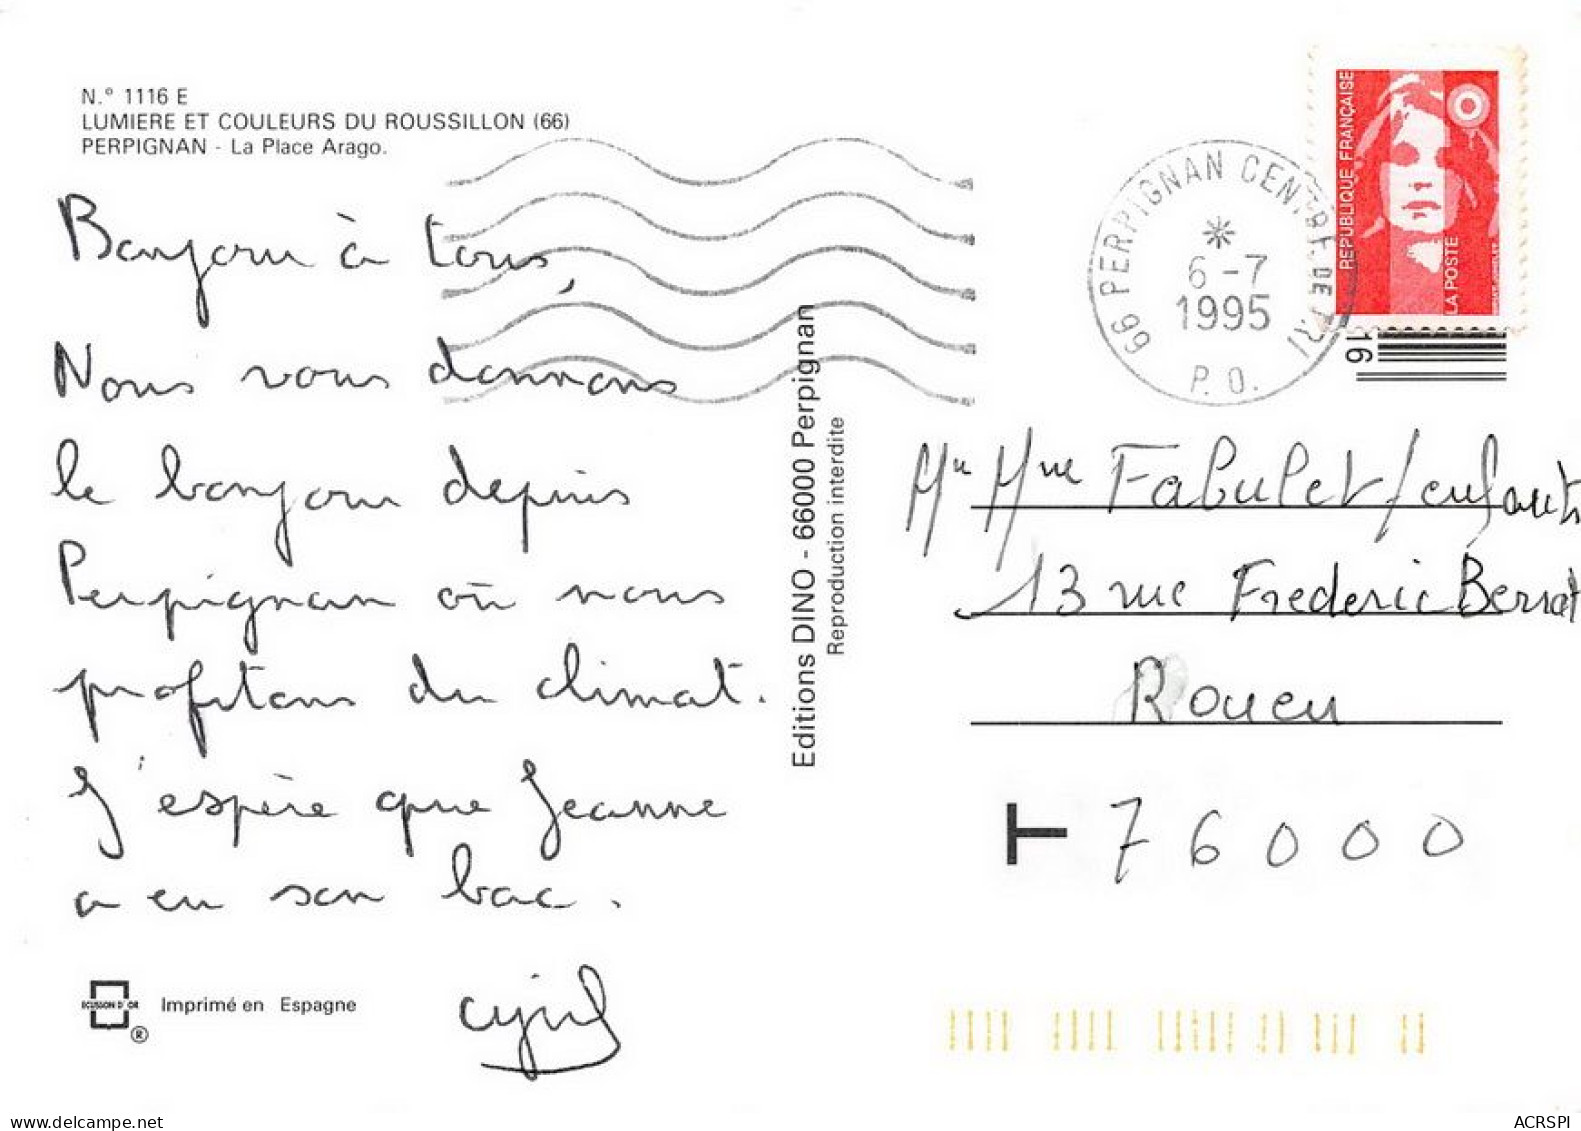 N.° 1116 E
LUMIERE ET COULEURS DU ROUSSILLON (66)
PERPIGNAN - La Place Arago.
Bonjour à tous,
Nous vous donnons
le bonjour depuis
Perpignan où nous
profitons du climat.
J'espère que Jeanne
a eu son bac.
Cyril
ECUSSON D'OR
®
Imprimé en Espagne
Editions DINO - 66000 Perpignan
Reproduction interdite
66 PERPIGNAN CENTRE DE TRI
6-7
1995
P. O.
REPUBLIQUE FRANÇAISE
LA POSTE
16
Mr Mme Fabulet/enfants
13 rue Frederic Berrat
Rouen
T 76000
delcampe.net
ACRSPI